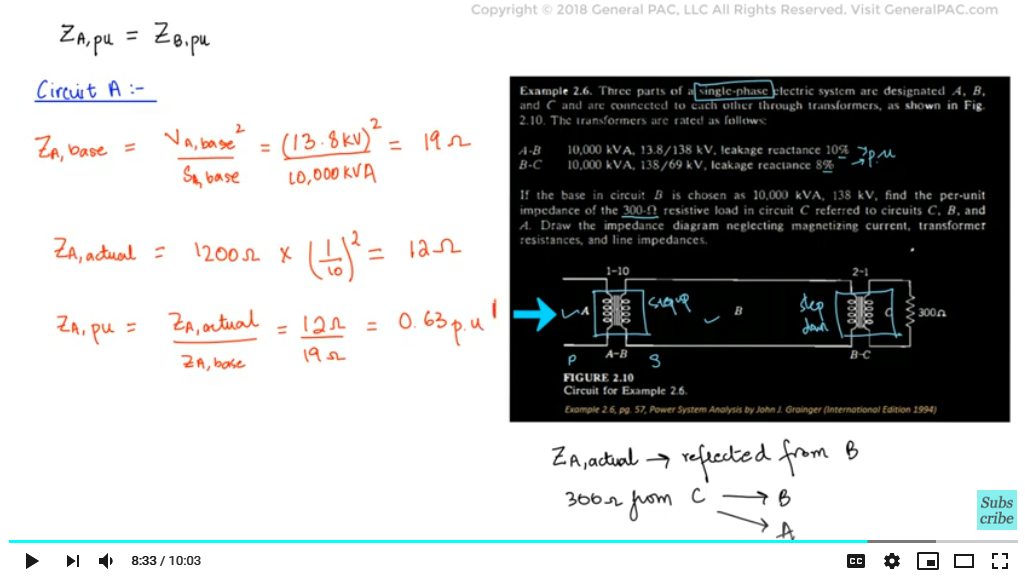 Copyright © 2018 General PAC, LLC All Rights Reserved. Visit GeneralPAC.com
Z_A,pu = Z_B,pu
Circuit A :-
Z_A,base = V_A,base² / S_A,base = (13.8kV)² / 10,000kVA = 19Ω
Z_A,actual = 1200Ω × (1/10)² = 12Ω
Z_A,pu = Z_A,actual / Z_A,base = 12Ω / 19Ω = 0.63 p.u
Example 2.6. Three parts of a single-phase electric system are designated A, B,
and C and are connected to each other through transformers, as shown in Fig.
2.10. The transformers are rated as follows:
A-B 10,000 kVA, 13.8/138 kV, leakage reactance 10%
B-C 10,000 kVA, 138/69 kV, leakage reactance 8%
→ p.u
If the base in circuit B is chosen as 10,000 kVA, 138 kV, find the per-unit
impedance of the 300-Ω resistive load in circuit C referred to circuits C, B, and
A. Draw the impedance diagram neglecting magnetizing current, transformer
resistances, and line impedances.
1-10 2-1
A step up B step down C 300Ω
P A-B S B-C
FIGURE 2.10
Circuit for Example 2.6.
Example 2.6, pg. 57, Power System Analysis by John J. Grainger (International Edition 1994)
Z_A,actual → reflected from B
300Ω from C → B
→ A
Subs
cribe
8:33 / 10:03
CC